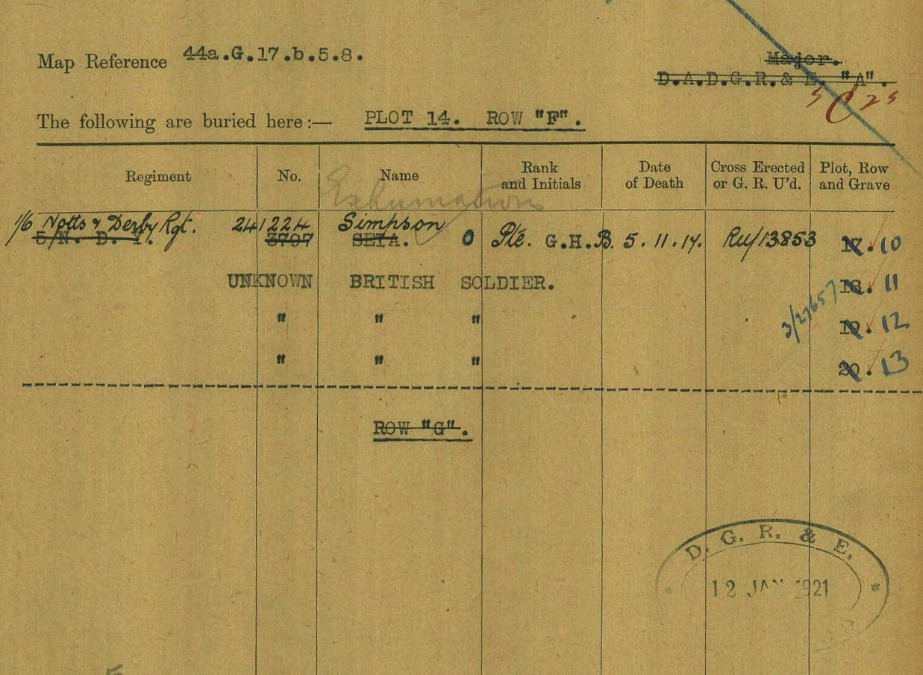 Map Reference 44a.G.17.b.5.8.
Major.
D.A.D.G.R.& E. "A".
The following are buried here:— PLOT 14. ROW "F".
Regiment No. Name Rank and Initials Date of Death Cross Erected or G. R. U'd. Plot, Row and Grave
Exhumations
1/6 Notts & Derby Rgt. 241224 Simpson
5/N. D. 3797 SETA. O Pte. G.H.B. 5.11.17. Ru/13853 17. 10
UNKNOWN BRITISH SOLDIER. 18. 11
" " " 19. 12
3/27657
" " " 20. 13
ROW "G".
D. G. R. & E.
12 JAN 1921